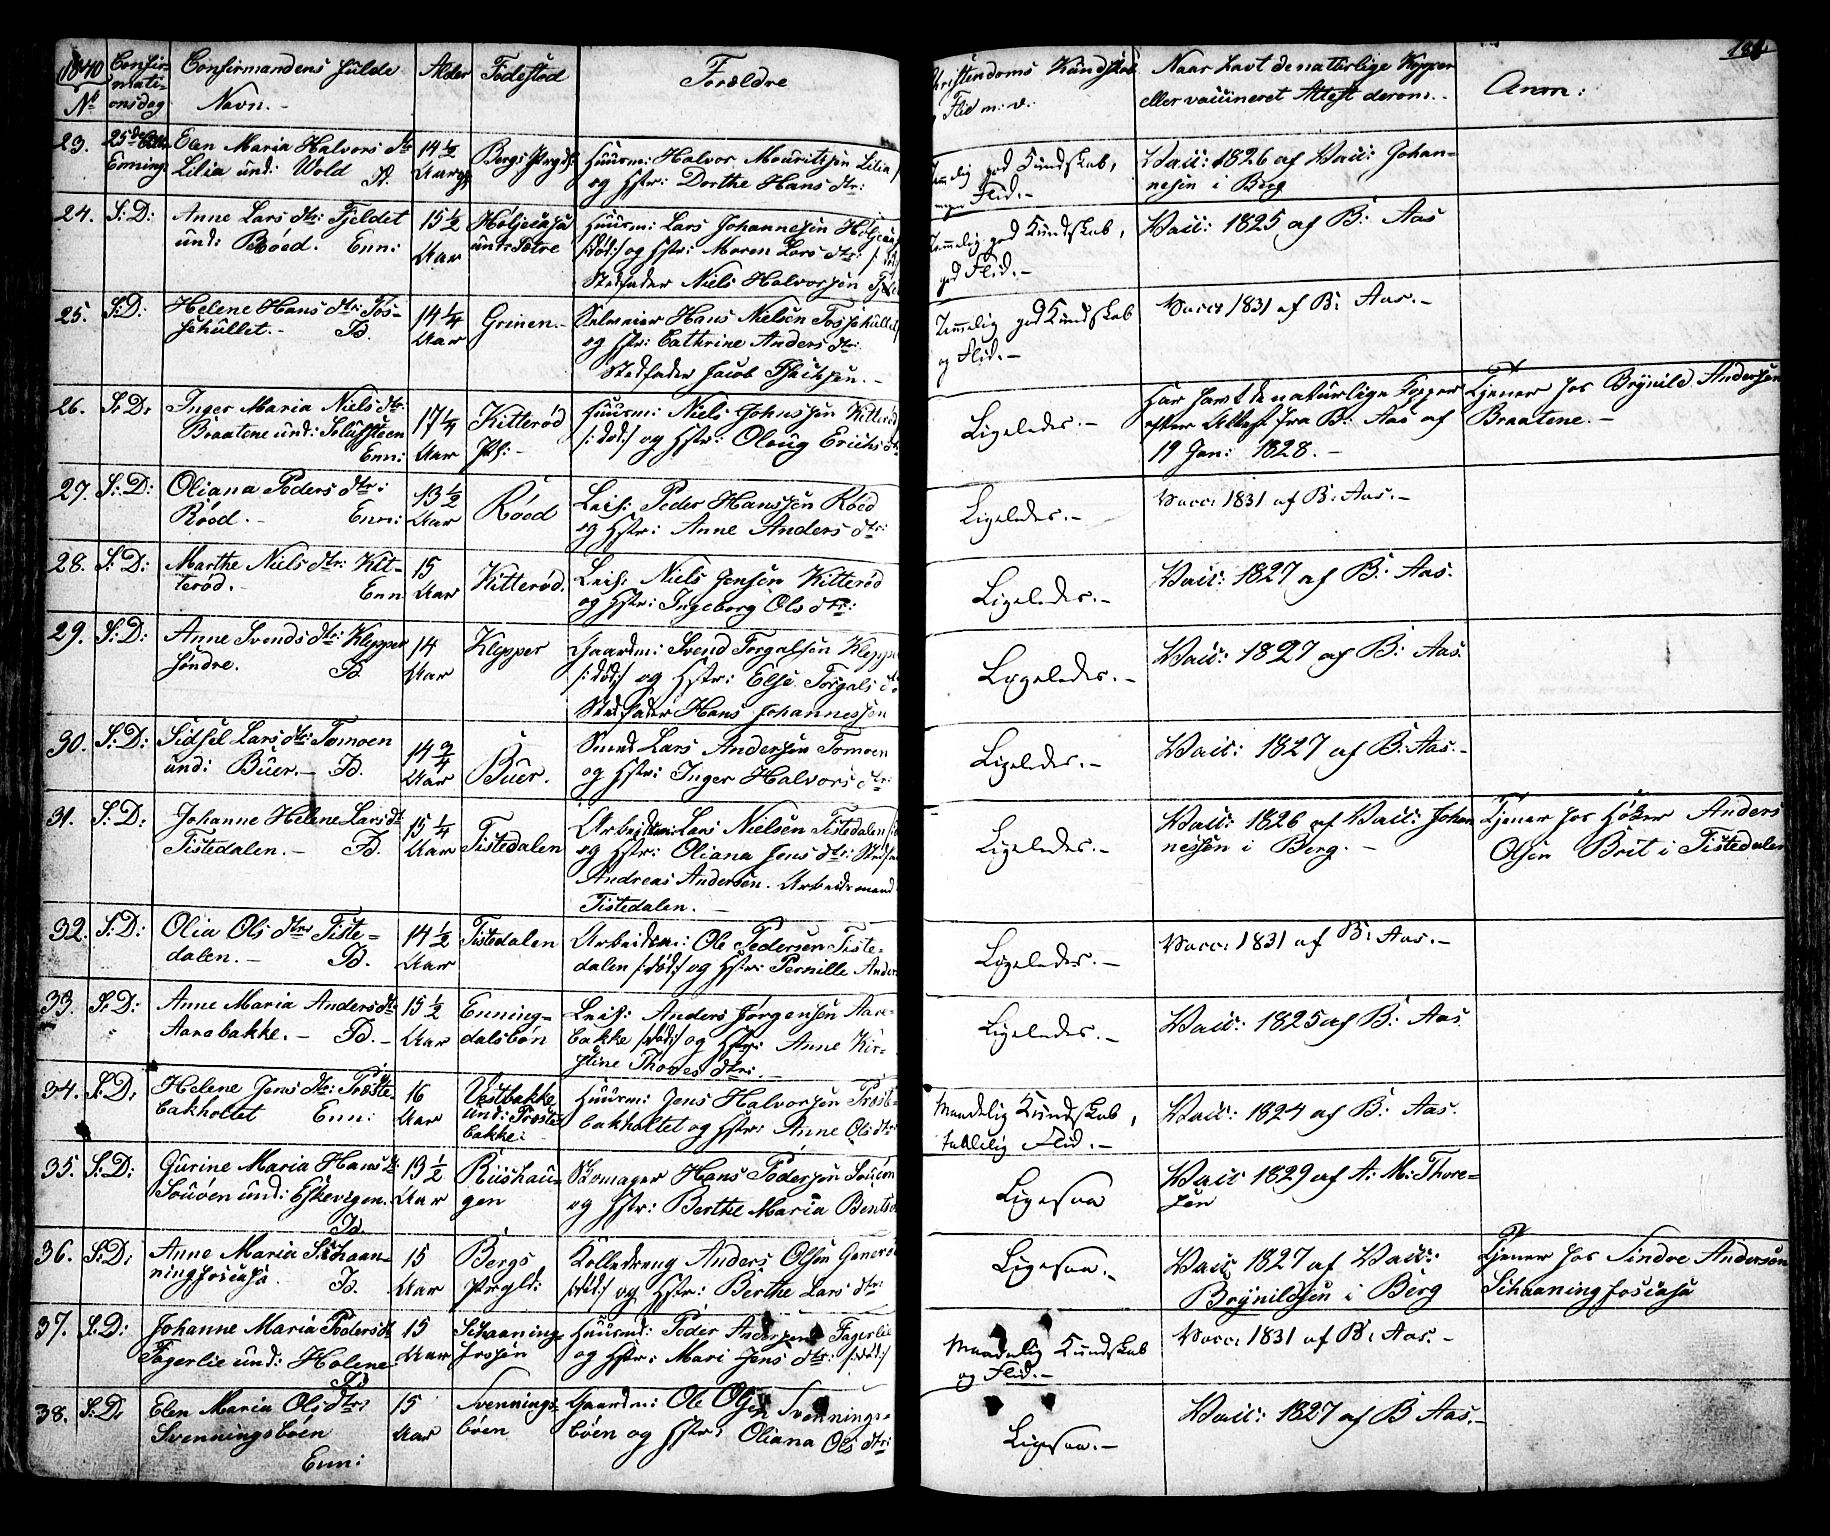 1840
Nº
Confir-
mati-
onsdag
Confirmandens fulde
Navn.-
Alder
Fødested
Forældre
Christendoms Kundskab
Flid m: v:
Naar havt de naturlige Kopper
eller vaccineret Attest derom.-
Anm:
23. 25de
Enning
Elen Maria Halvors dtr
Lilia und: Wold B.
14 1/2
Aar
Bergs Prgld:
Huusm: Halvor Mouritsen Lilia
og Hstr: Dorthe Hans dtr:
Temmelig god Kundskab,
Flid.-
Vacc: 1826 af Vacc: Johan-
nesen i Berg
24. S: D:
Anne Lars dtr: Fjeldet
und: Røed. Enn:
15 1/2
Aar
und: Sætre
Huusm: Lars Johannesen
/:død:/ og Hstr: Maren Lars dtr:
Stedfader Niels Halvorsen
Temmelig god Kundskab,
god Flid.-
Vacc: 1825 af B: Aas
25. S:D:
Helene Hans dtr: Fos-
sekullet.- B.
14 1/4
Aar
Grinen.-
Hans Nielsen Fossekullet
og Hstr: Cathrine Anders dtr:
Stedfader Jacob Isacksen.-
Temmelig god Kundskab
og Flid.-
Vacc: 1831 af B: Aas.-
26. S: D:
Inger Maria Niels dtr:
Braatene und:
Enn:
17 1/4
Aar
Kitterød
Huusm: Niels Johnssen Kitterød
/:død:/ og Hstr: Oloug Erichs dtr
Ligeledes.-
Har havt de naturlige Kopper
efter Attest fra B: Aas af
19 Jan: 1828.-
Tjener hos Brynild Andersen
Braatene.-
27. S: D:
Oliana Peders dtr:
Røed.- Enn:
13 1/2
Aar
Røed
Leil: Peder Hanssen Røed
og Hstr: Anne Anders dtr:
Ligeledes.-
Vacc: 1831 af B: Aas.-
28. S: D:
Marthe Niels dtr: Kit-
terød.- Enn
15
Aar
Kitterød.
Leil: Niels Jensen Kitterød
og Hstr: Ingeborg Ols dtr:
Ligeledes.-
Vacc: 1827 af B: Aas.
29. S: D:
Anne Svends dtr: Klepper
søndre. B.
14
Aar
Klepper
Gaardm: Svend Torgalsen Klepper
/:død:/ og Hstr: Else Torgals dtr
Stedfader Hans Johannessen
Ligeledes.-
Vacc: 1827 af B: Aas.
30. S: D:
Sidsel Lars dtr: Tomoen
und: Buer.- B.
14 3/4
Aar
Buer.
Smed Lars Andersen Tomoen
og Hstr: Inger Halvors dtr:
Ligeledes.-
Vacc: 1827 af B: Aas.-
31. S: D:
Johanne Helene Lars dtr
Tistedalen.- B.
15 1/4
Aar
Tistedalen
Arbeidsm: Lars Nielsen Tistedalen
og Hstr: Oliana Jens dtr:
Andreas Andersen. Arbeidsmand
Tistedalen.-
Ligeledes.-
Vacc: 1826 af Vacc: Johan
nessen i Berg.-
Tjener hos Høker Anders
Olsen Brit i Tistedalen
32. S: D:
Olia Ols dtr Tiste-
dalen.- B.
14 1/2
Aar
Tistedalen
Arbeidsm: Ole Pedersen Tiste-
dalen /:død:/ og Hstr: Pernille Anders
Ligeledes.-
Vacc: 1831 af B: Aas.-
33. S: D:
Anne Maria Anders dtr
Aarebakke.- B.-
15 1/2
Aar
Enning-
dalsbøn
Leil: Anders Jørgensen Aare-
bakke /:død:/ og Hstr: Anne Kir-
stine Thores dtr:-
Ligeledes.-
Vacc: 1825 af B: Aas
34. S: D:
Helene Jens dtr: Præste-
bakholtet Enn:
16
Aar
Vestbakke
und: Præste
bakke:
Huusm: Jens Halvorsen Præste-
bakholtet og Hstr: Anne Ols dtr:
Maadelig Kundskab,
taalelig Flid.-
Vacc: 1824 af B: Aas.
35. S: D:
Gurine Maria Hans
und: Eskevigen.
B.
13 1/2
Aar
Riishau-
gen
Skomager Hans Pedersen
og Hstr: Berthe Maria Bents
Ligesaa
Vacc 1829 af A: M: Thore-
sen
36. S: D:
Anne Maria Schaan-
ningfosaasa B.
15
Aar
Bergs
Prgld:
Anders Olsen
/:død:/ og Hstr: Berthe Lars dtr
Ligesaa.-
Vacc 1827 af Vacc:
Brynildsen i Berg
Tjener hos Sindre Andersen
37. S: D:
Johanne Maria Peders dtr
Fagerlie und: Holene
B
15
Aar
Schaaning-
Huusmd: Peder Andersen Fagerlie
og Hstr: Mari Jens dtr: /:død:/
Maadelig Kundskab
og Flid.-
Vacc: 1831 af B: Aas.-
38. S: D:
Elen Maria Ols dtr:
Svenningsbøen
Enn:
15
Aar
Svennings-
bøen
Gaardm: Ole Olsen Svennings-
bøen og Hstr: Oliana Ols dtr:
Ligesaa.-
Vacc: 1827 af B Aas.-